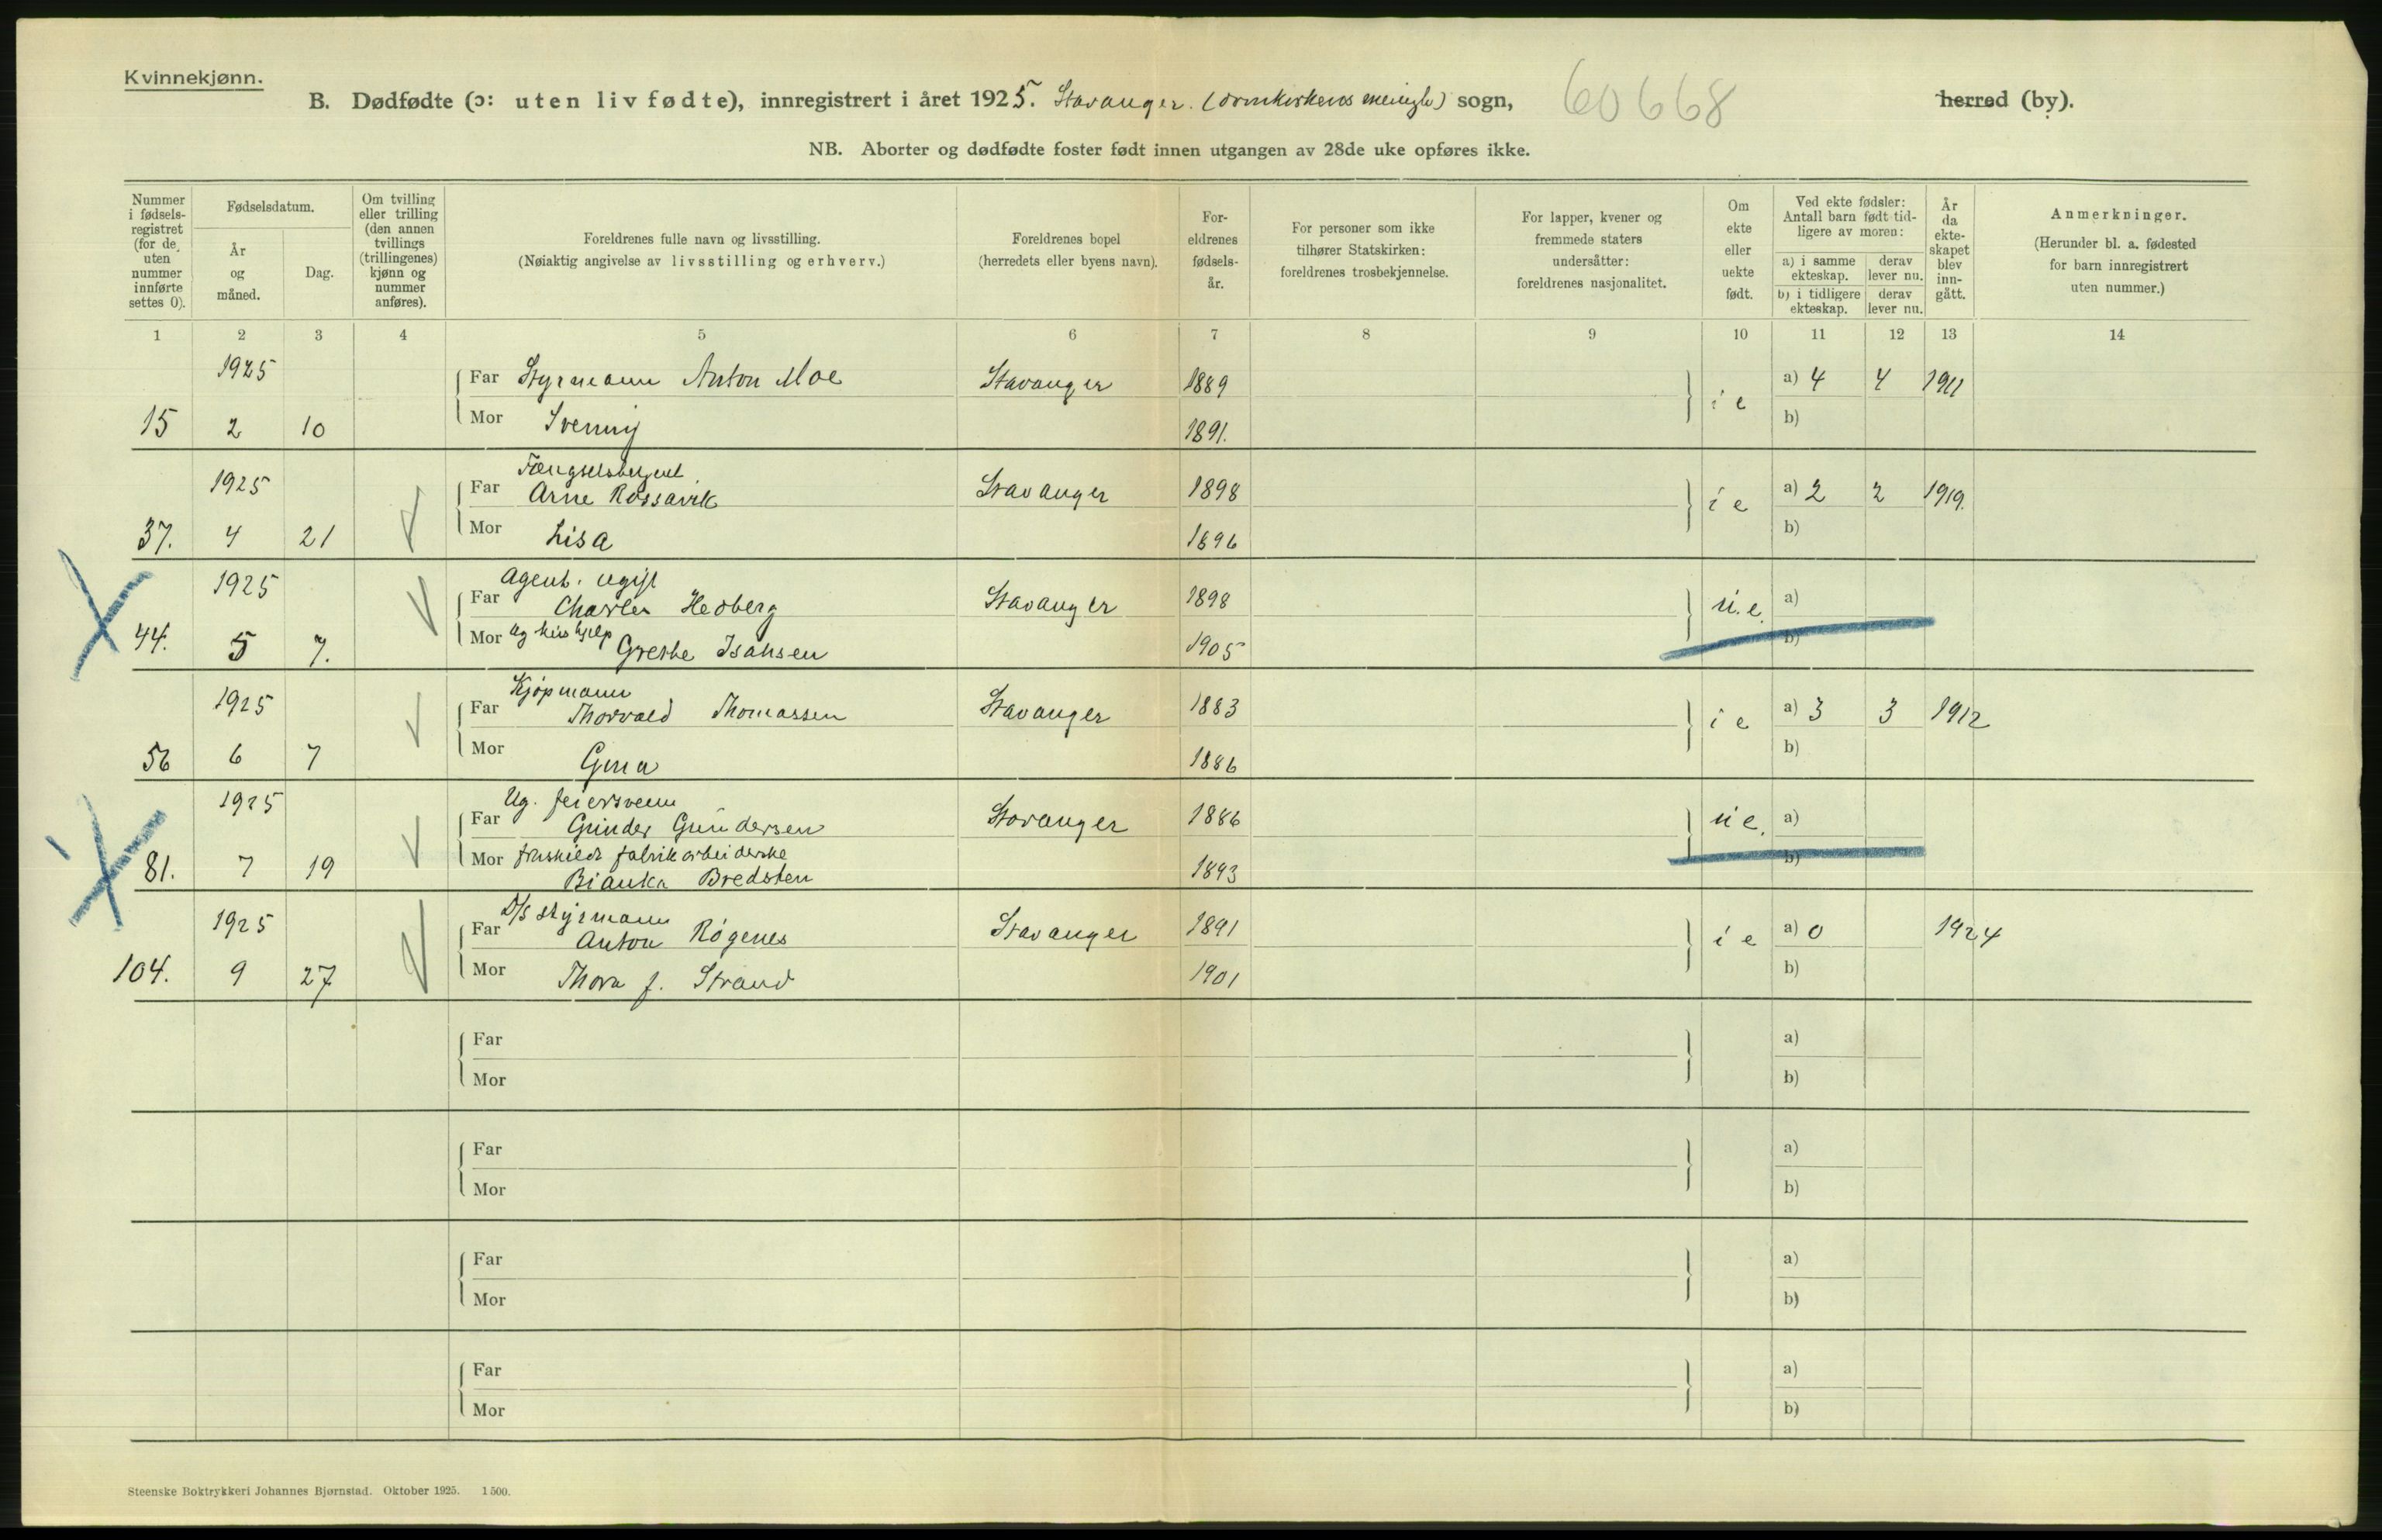 Kvinnekjønn.
B. Dødfødte (ɔ: uten liv fødte), innregistrert i året 1925. Stavanger. (domkirkens menigh) sogn, 60668 herred (by).
NB. Aborter og dødfødte foster født innen utgangen av 28de uke opføres ikke.
Nummer i fødsels-registret (for de uten nummer innførte settes 0).
Fødselsdatum.
År og måned.
Dag.
Om tvilling eller trilling (den annen tvillings (trillingenes) kjønn og nummer anføres).
Foreldrenes fulle navn og livsstilling.
(Nøiaktig angivelse av livsstilling og erhverv.)
Foreldrenes bopel
(herredets eller byens navn).
For-eldrenes fødsels-år.
For personer som ikke tilhører Statskirken: foreldrenes trosbekjennelse.
For lapper, kvener og fremmede staters undersåtter: foreldrenes nasjonalitet.
Om ekte eller uekte født.
Ved ekte fødsler: Antall barn født tid-ligere av moren:
a) i samme ekteskap.
derav lever nu.
b) i tidligere ekteskap.
derav lever nu.
År da ekte-skapet blev inn-gått.
Anmerkninger.
(Herunder bl. a. fødested for barn innregistrert uten nummer.)
1 2 3 4 5 6 7 8 9 10 11 12 13 14
1925
Far Styrmann Anton Moe Stavanger 1889 i e a) 4 4 1911
15 2 10 Mor Svenny 1891. b)
1925
Far Arne Rossavik Stavanger 1898 i e a) 2 2 1919.
37. 4 21 Mor Lisa 1896 b)
1925 Agent. ugift
Far Charles Hedberg Stavanger 1898 u. e. a)
44. 5 7. Mor ug hushjelp Grethe Isaksen 1905 b)
1925 Kjøpmann
Far Thorvald Thomassen Stavanger 1883 i e a) 3 3 1912
56 6 7 Mor Gina 1886 b)
1925 Ug. feiersvenn
Far Gunder Gundersen Stavanger 1886 u e. a)
81. 7 19 Mor fraskildt fabrikarbeiderske 1893 b)
Bianka Bredsten
1925 D/S styrmann
Far Anton Rögenes Stavanger 1891 i e a) 0 1924
104. 9 27 Mor Thora f. Strand 1901 b)
Far a)
Mor b)
Far a)
Mor b)
Far a)
Mor b)
Far a)
Mor b)
Steenske Boktrykkeri Johannes Bjørnstad. Oktober 1925. 1500.